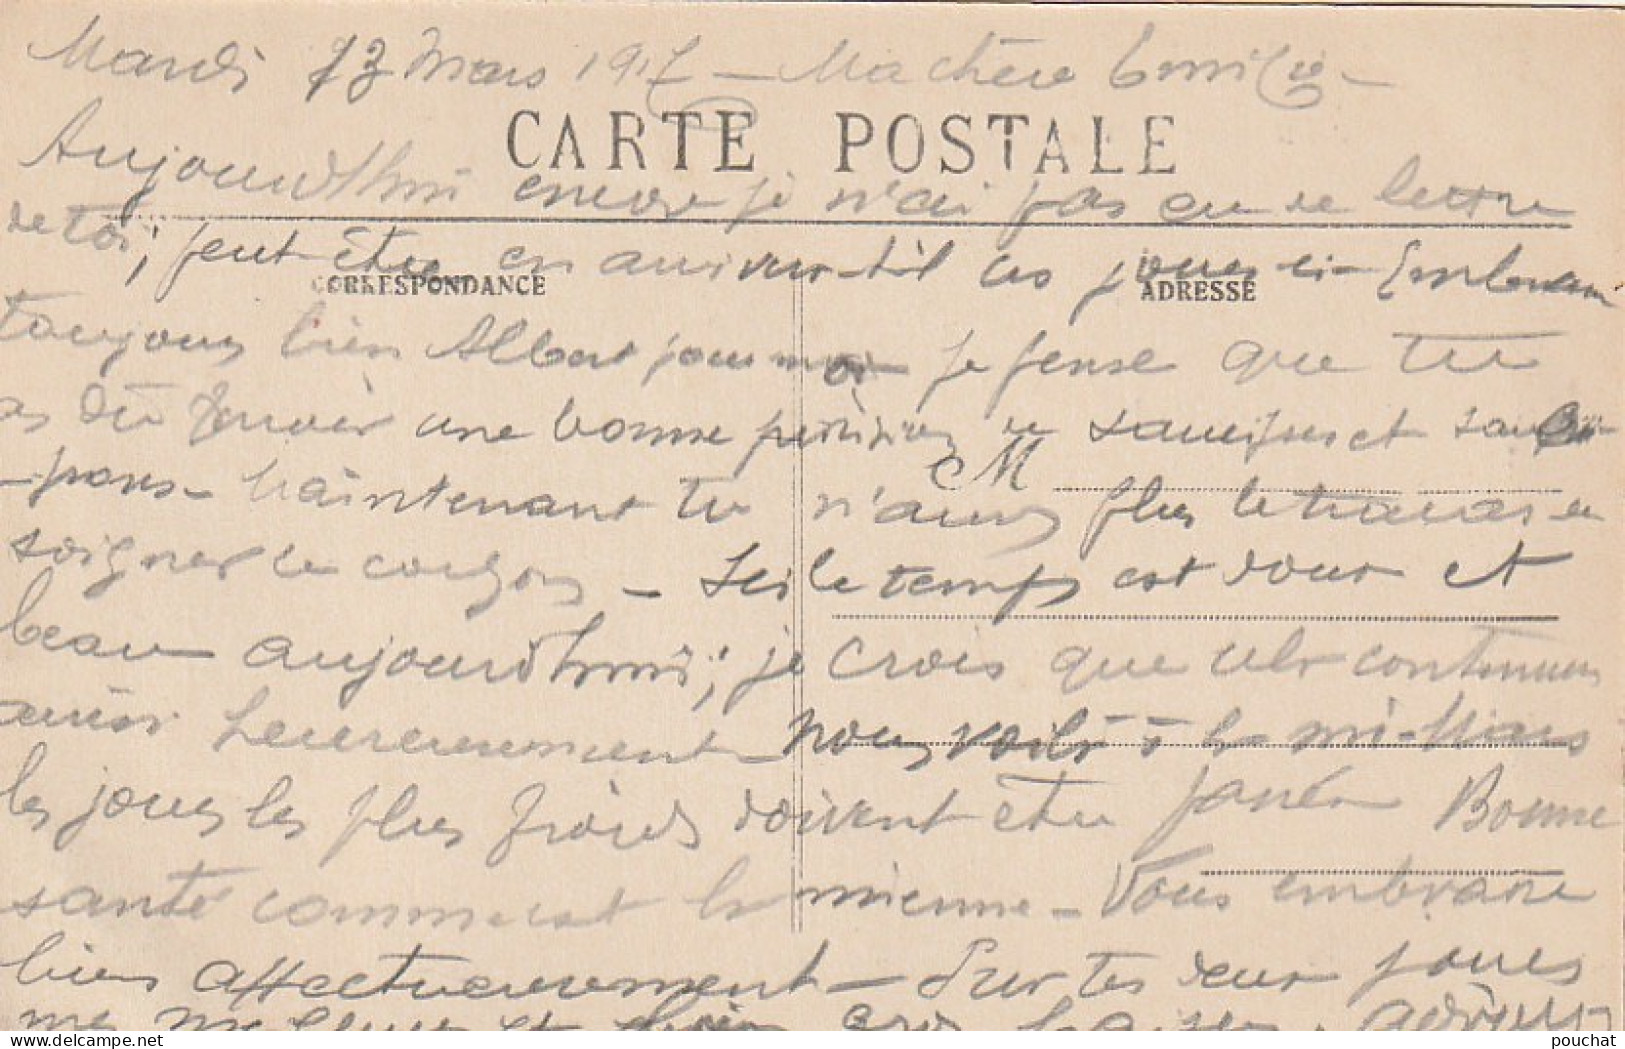 Mardi 13 Mars 1917 — Ma chère Emilie —
CARTE POSTALE
Aujourd'hui encore je n'ai pas eu de lettre
de toi; peut-être en arrivera-t-il ces jours-ci — Embrasse
CORRESPONDANCE
ADRESSE
toujours bien Albert pour moi — Je pense que tu
as dû avoir une bonne provision de saucisses et
Maintenant tu n'auras plus le tracas de
M
soigner le cochon — Ici le temps est doux et
beau aujourd'hui; je crois que cela continuera
ainsi heureusement nous voilà à la mi-Mars
les jours les plus froids doivent être passés Bonne
santé comme est la mienne — Vous embrasse
bien affectueusement — Sur tes deux joues
mes meilleurs et gros baisers.
pouchat